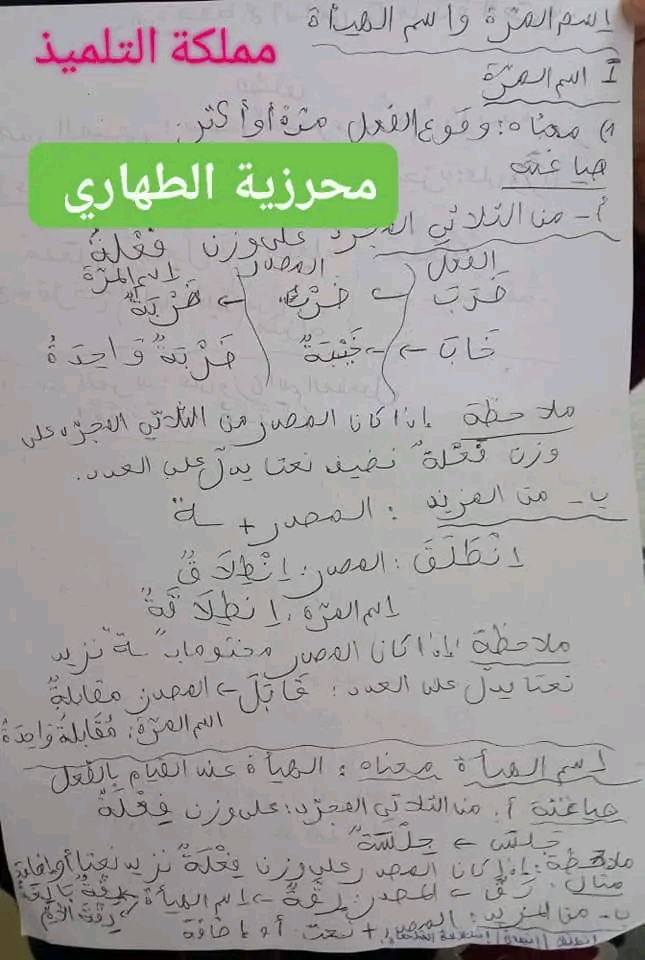 إسم المرّة وإسم الهيأة
مملكة التلميذ
I اسم المرّة
1) معناه: وقوع الفعل مرّة أو أكثر.
صياغته
محرزية الطهاري
أ- من الثلاثي المجرّد على وزن فَعْلَةٌ
الفعل المصدر إسم المرّة
ضَرَبَ ← ضَرْبٌ ← ضَرْبَةٌ
خَابَ ← خَيْبَةٌ ضَرْبَةٌ وَاحِدَةٌ
ملاحظة إذا كان المصدر من الثلاثي المجرّد على
وزن فَعْلَةٌ نضيف نعتا يدلّ على العدد.
ب- من المزيد : المصدر + ـة
اِنْطَلَقَ : المصدر: اِنْطِلَاقٌ
اسم المرّة: اِنطِلَاقَةٌ
ملاحظة إذا كان المصدر مختوما بـ "ـة" نزيد
نعتا يدل على العدد: قَابَلَ ← المصدر مقابلةٌ
اسم المرّة: مُقَابَلَةٌ وَاحِدَةٌ
اسم الهيأة معناه : الهيأة عند القيام بالفعل
صياغته أ. من الثلاثي المجرّد: على وزن فِعْلَةٌ
جَلَسَ ← جِلْسَةٌ
ملاحظة: إذا كان المصدر على وزن فِعْلَةٌ نزيد نعتا أو إضافة
مثال: رَقَّ ← المصدر: رِقَّةٌ ← اسم الهيأة رِقَّةٌ بَالِغَةٌ
رِقَّةَ الأمّ
ب- من المزيد: المصدر + نعت أو إضافة